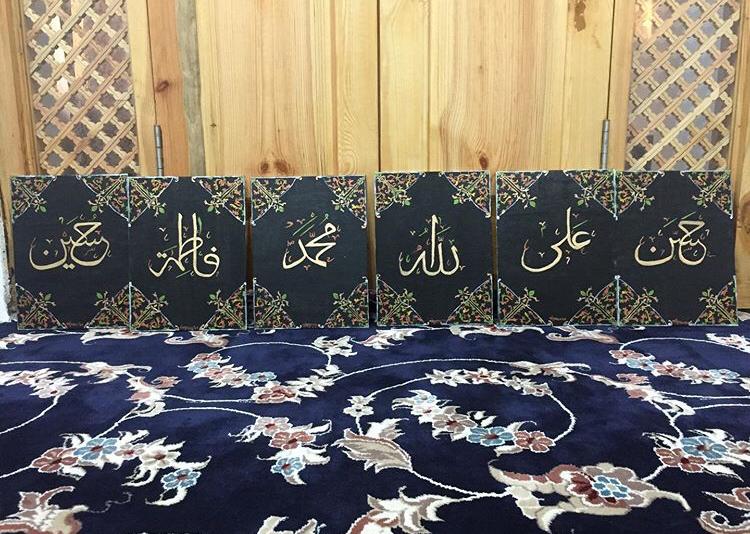 حسن
علی
الله
محمد
فاطمة
حسین